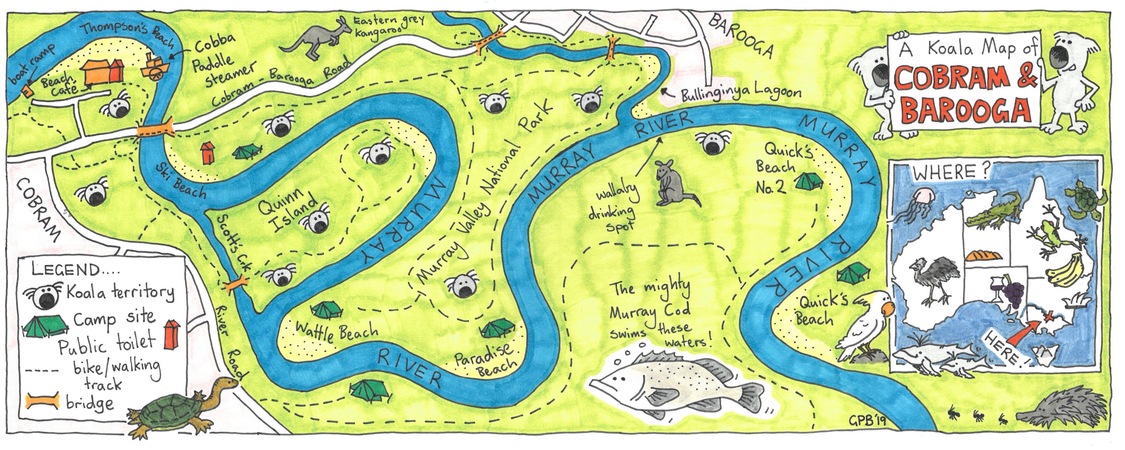 Thompson's Beach
boat ramp
Beach
Cafe
Cobba
Paddle
Steamer
Eastern grey
kangaroo
Cobram Barooga Road
BAROOGA
Bullinginya Lagoon
A Koala Map of
COBRAM &
BAROOGA
WHERE?
HERE
COBRAM
Ski Beach
Quinn
Island
MURRAY
Scott's Crk
Murray Valley National Park
MURRAY RIVER
wallaby
drinking
spot
Quick's
Beach
No.2
MURRAY
RIVER
Quick's
Beach
The mighty
Murray Cod
swims these
waters!
Wattle Beach
RIVER
Paradise
Beach
River Road
LEGEND....
Koala territory
Camp site
Public toilet
bike/walking
track
bridge
GPB'19